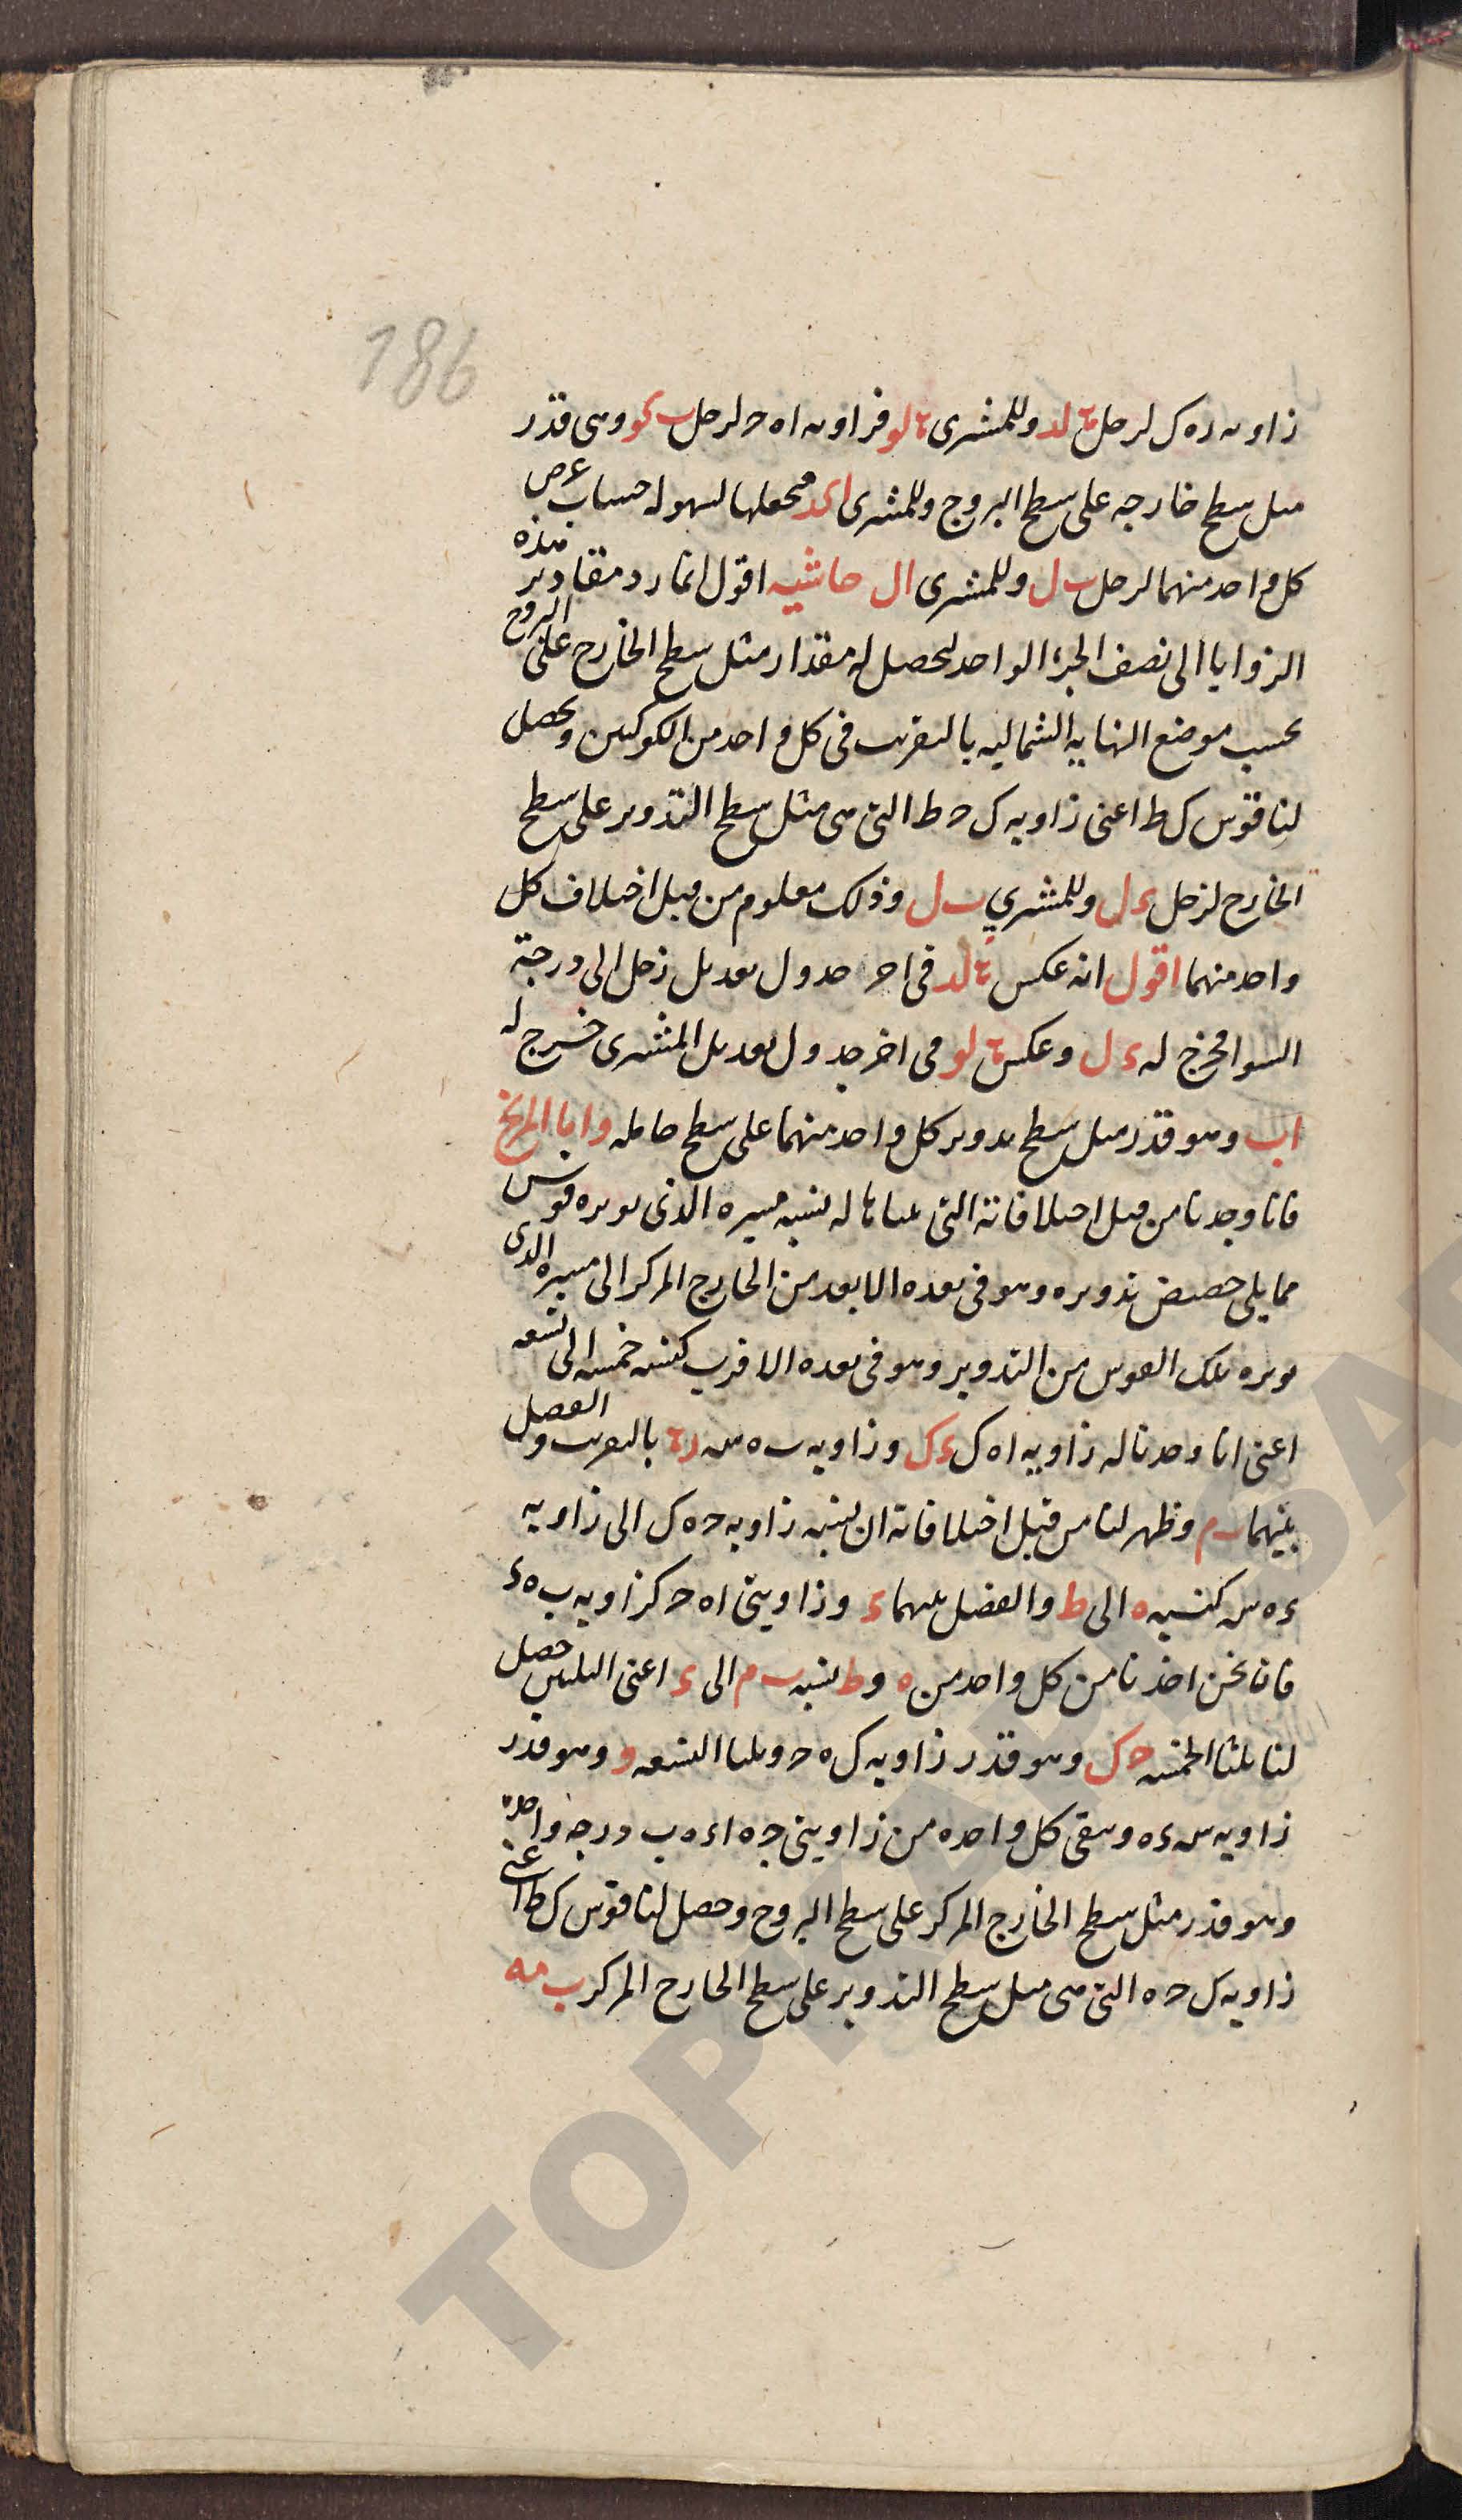 186
زاويه ده ك لزحل ٠ لد وللمشترى ٠ لو فزاويه ا ه ح لزحل ب كو وهى قدر
ميل سطح خارجه على سطح البروج وللمشترى ا كد فنجعلها لسهولة حساب عرض
كل واحد منهما لزحل ب ل وللمشترى ا ل حاشيه اقول انما رد مقادير هذه
الزوايا الى نصف الجزء الواحد ليحصل له مقدار مثل سطح الخارج على البروج
بحسب موضع النهايه الشماليه بالتقريب فى كل واحد من الكوكبين ويحصل
لنا قوس ك ط اعنى زاويه ك ح ط التى هى مثل سطح التدوير على سطح
الخارج لزحل ء ل وللمشتري ب ل وذلك معلوم من قبل اختلاف كل
واحد منهما اقول انه عكس ٠ لد فى اخر جدول تعديل زحل الى درجة
السوا فخرج له ء ل وعكس ٠ لو فى اخر جدول تعديل المشترى خرج له
ا ب وهو قدر ميل سطح تدوير كل واحد منهما على سطح حامله واما المريخ
فانا وجدنا من قبل اختلافاته التى له نسبه مسيره الذى يوتره قوس
مما يلى حضيض تدويره وهو فى بعده الابعد من الخارج المركز الى مسيره الذى
يوتره تلك القوس من التدوير وهو فى بعده الاقرب كنسبه خمسه الى تسعه
اعنى انا وجدنا له زاويه ا ه ك ء ك وزاويه ب ه س ر ٠ بالتقريب والفضل
بينهما ب م وظهر لنا من قبل اختلافاته ان نسبه زاويه ح ه ك الى زاويه
ء ه س كنسبه ه الى ط والفضل بينهما ء وزاويتى ا ه ح كزاويه ب ه ء
فان نحن اخذنا من كل واحد من ه و ط نسبه ب م الى ء اعنى الثلثين حصل
لنا ثلثا الخمسه ح ك وهو قدر زاويه ك ه ح وثلثا التسعه و وهو قدر
زاويه س ء ه ويبقى كل واحده من زاويتى ج ه ا ء ه ب درجه واحده
وهو قدر مثل سطح الخارج المركز على سطح البروج وحصل لنا قوس ك ط اعنى
زاويه ك ح ه التى هى ميل سطح التدوير على سطح الخارج المركز ب مه